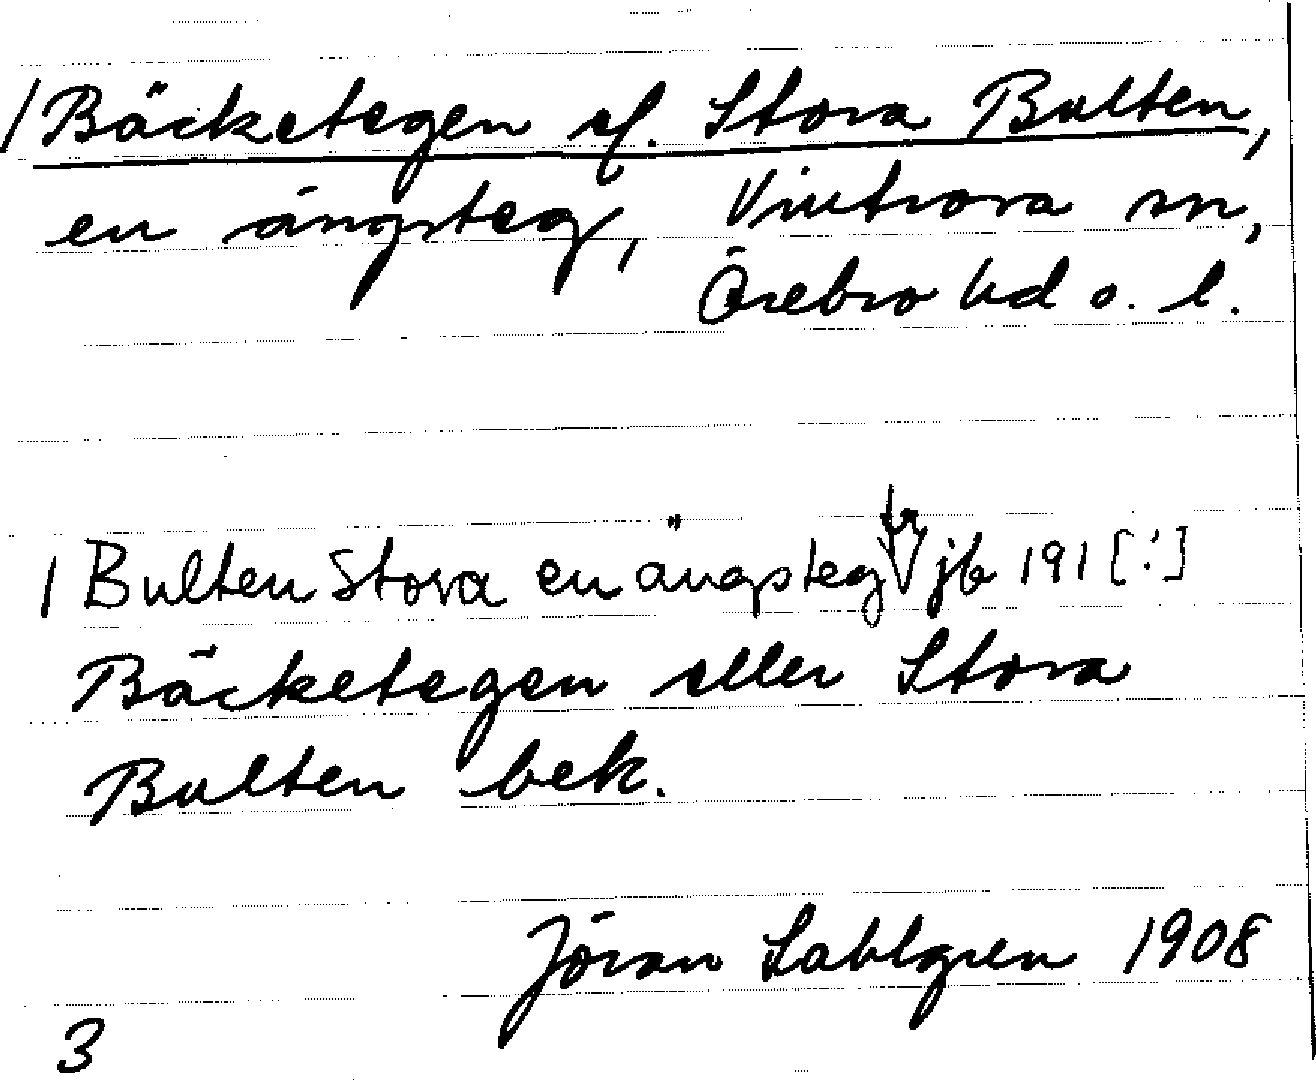 / Bäcketegen el. Stora Bulten,
en ängsteg, Vintrosa sn,
Örebro hd o. l.
/ Bulten Stora en ängsteg jb 191 [!]
Bäcketegen eller Stora
Bulten bek.
Jöran Sahlgren 1908
3